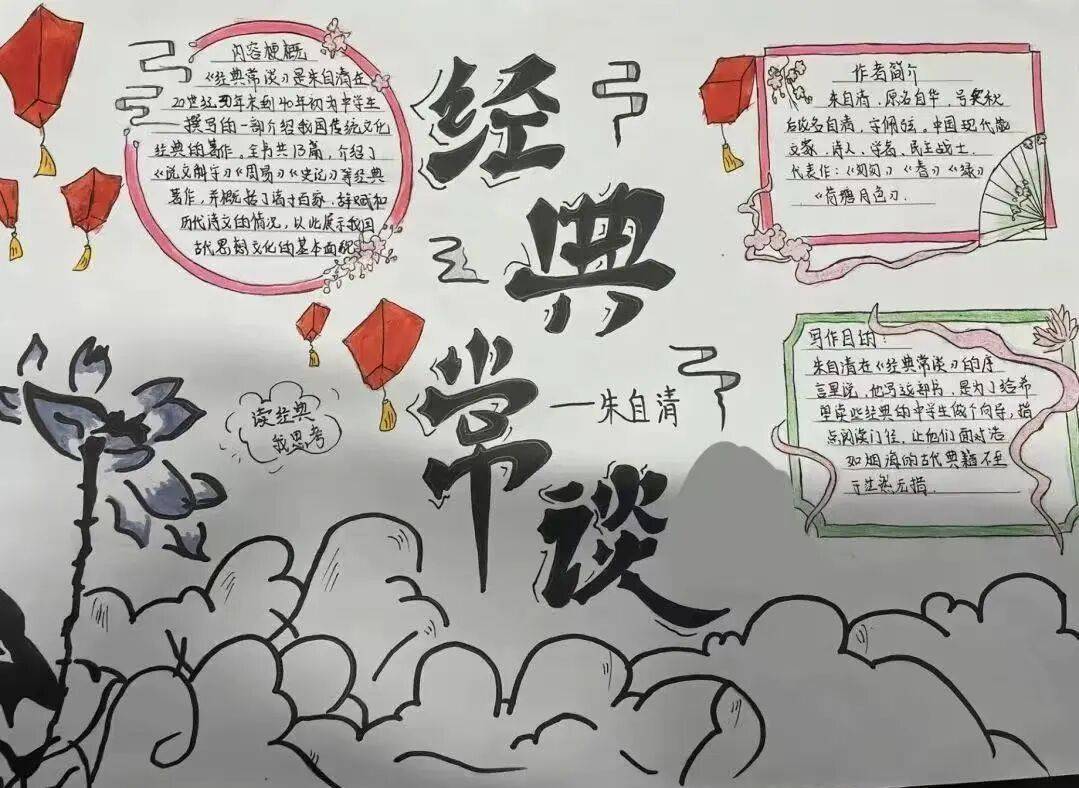 内容梗概
《经典常谈》是朱自清在
20世纪30年末到40年初为中学生
撰写的一部介绍我国传统文化
经典的著作，全书共13篇，介绍了
《说文解字》《周易》《史记》等经典
著作，并概括了诸子百家，辞赋和
历代诗文的情况，以此展示我国
古代思想文化的基本面貌
经典常谈
—朱自清
读经典
我思考
作者简介
朱自清，原名自华，号实秋
后改名自清，字佩弦。中国现代散
文家、诗人、学者、民主战士.
代表作：《匆匆》《春》《绿》
《荷塘月色》.
写作目的：
朱自清在《经典常谈》的序
言里说，他写这部书，是为了给希
望读些经典的中学生做个向导，指
点阅读门径，让他们面对浩
如烟海的古代典籍不至
于茫然无措.